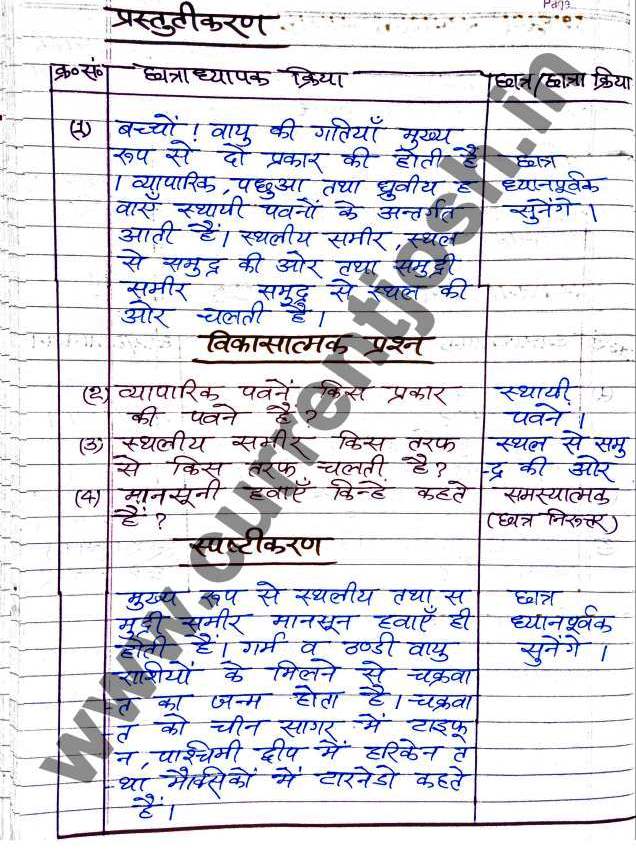 Page
प्रस्तुतीकरण
क्र०सं० छात्राध्यापक क्रिया छात्र/छात्रा क्रिया
(1) बच्चों ! वायु की गतियाँ मुख्य
रूप से दो प्रकार की होती है छात्र
। व्यापारिक, पछुआ तथा ध्रुवीय ह ध्यानपूर्वक
वाएँ स्थायी पवनों के अन्तर्गत सुनेंगे ।
आती हैं। स्थलीय समीर, स्थल
से समुद्र की ओर तथा समुद्री
समीर समुद्र से स्थल की
ओर चलती है।
विकासात्मक प्रश्न
(2) व्यापारिक पवनें किस प्रकार स्थायी
की पवने हैं ? पवने ।
(3) स्थलीय समीर किस तरफ स्थल से समु
से किस तरफ चलती है? -द्र की ओर
(4) मानसूनी हवाएँ किन्हे कहते समस्यात्मक
हैं ? (छात्र निरूत्तर)
स्पष्टीकरण
मुख्य रूप से स्थलीय तथा स छात्र
मुद्री समीर मानसून हवाएँ ही ध्यानपूर्वक
होती हैं। गर्म व ठण्डी वायु सुनेंगे ।
राशियों के मिलने से चक्रवा
-त का जन्म होता है। चक्रवा
-त को चीन सागर में टाइफू
न, पाश्चिमी द्वीप में हरिकेन त
-था मैक्सिकों में टारनेडो कहते
हैं।
www.currentjosh.in